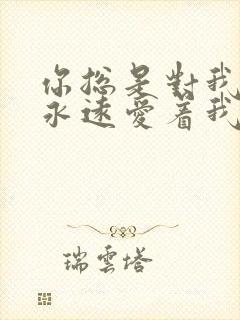 你總是對我
永遠愛着我
瑞雲塔